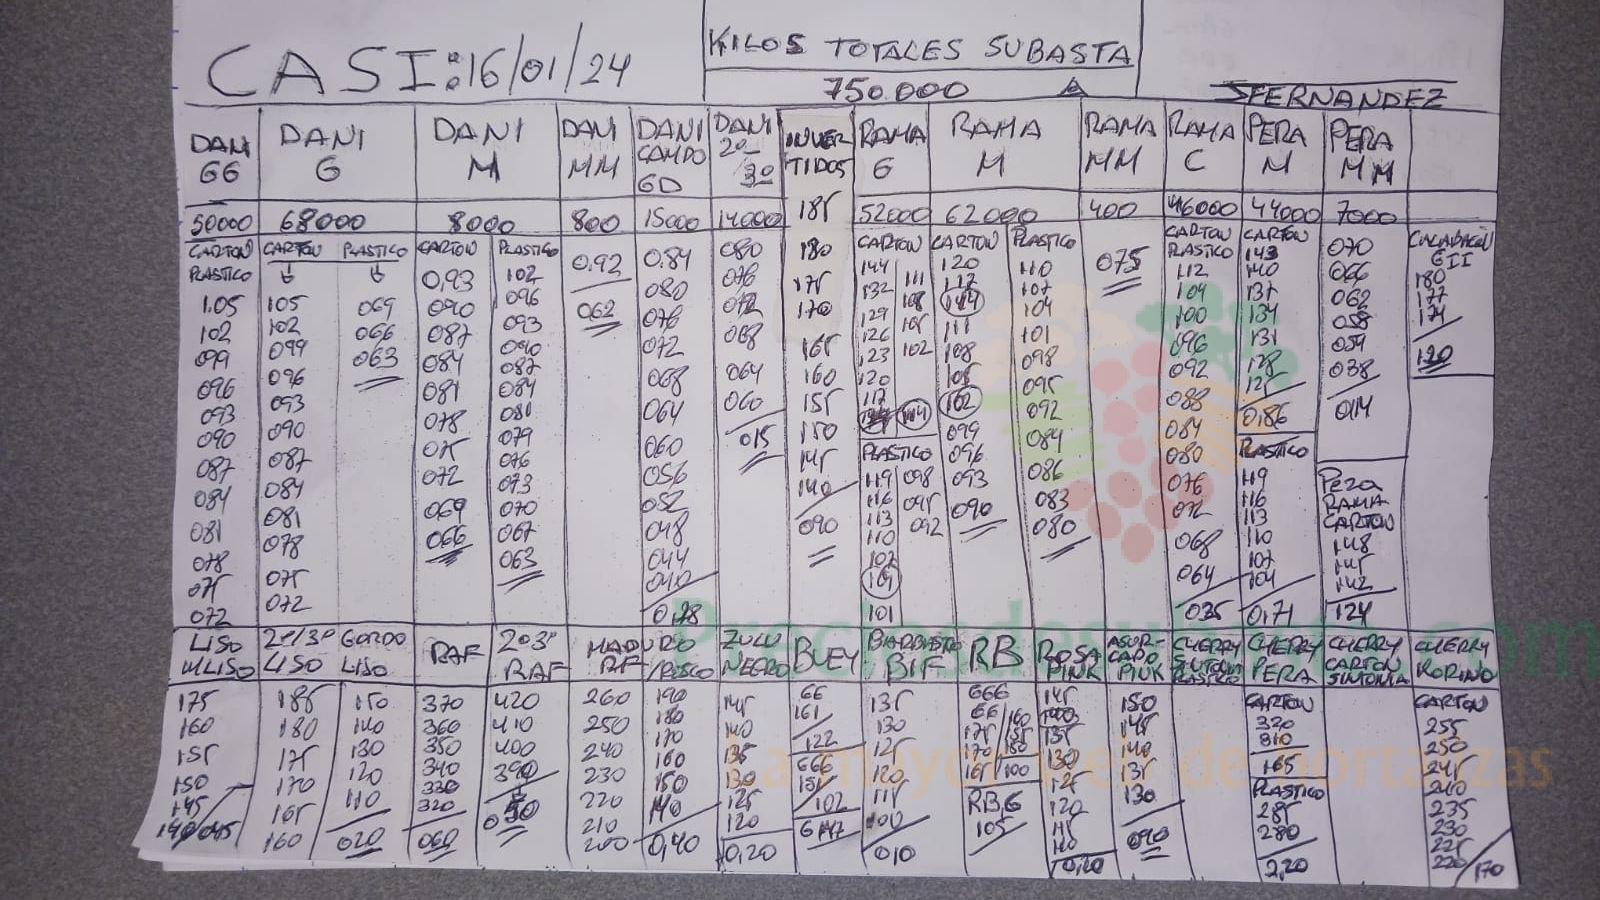 CASI: 16/01/24
KILOS TOTALES SUBASTA
750.000
JFERNANDEZ
DANI GG
50000
CARTON
PLASTICO
1.05
102
099
096
093
090
087
084
081
078
075
072
DANI G
68000
CARTON
105
102
099
096
093
090
087
084
081
078
075
072
PLASTICO
069
066
063
DANI M
8000
CARTON
0,93
090
087
084
081
078
075
072
069
066
PLASTICO
102
096
093
090
087
084
081
079
076
073
070
067
063
DANI MM
800
0.92
062
DANI CAMPO GD
15000
0.84
080
076
072
068
064
060
056
052
048
044
040
DANI 2º 3º
14000
080
076
072
068
064
060
015
INVERTIDOS
185
180
175
170
165
160
155
150
145
140
090
RAMA G
52000
CARTON
144
132
129
126
123
120
117
111
108
105
102
PLASTICO
119
116
113
110
107
104
101
098
095
092
RAMA M
62000
CARTON
120
117
114
111
108
105
102
099
096
093
090
PLASTICO
110
107
104
101
098
095
092
084
086
083
080
RAMA MM
400
075
RAMA C
46000
CARTON
PLASTICO
112
104
100
096
092
088
084
080
076
072
068
064
035
PERA M
44000
CARTON
143
140
137
134
131
128
125
0,86
PLASTICO
119
116
113
110
107
104
0,71
PERA MM
7000
070
066
062
058
054
038
014
PERA
RAMA
CARTON
148
145
142
124
GII
180
177
174
120
LISO
MLISO
175
160
155
150
145
140/045
2º/3º
LISO
185
180
175
170
165
160
GORDO
LISO
150
140
130
120
110
020
RAF
370
360
350
340
330
320
060
2º3º
RAF
420
410
400
390
MADURO
RF
260
250
240
230
220
210
200
190
180
170
160
150
140
0,40
ZULU
NEGRO
145
140
135
130
125
120
0,20
BUEY
66
161
122
666
151
102
G 147
BIF
135
130
125
120
115
100
010
RB
666
66
175
170
165
160
155
150
100
RBG
105
ROSA
PINK
145
140
135
130
125
120
115
110
0,20
ASURCADO
PINK
150
145
140
135
130
090
CHERRY
SINTONIA
PLASTICO
CHERRY
PERA
CARTON
320
310
165
PLASTICO
285
280
2,20
CHERRY
CARTON
SINTONIA
CHERRY
KORINO
CARTON
255
250
245
240
235
230
225
220/170